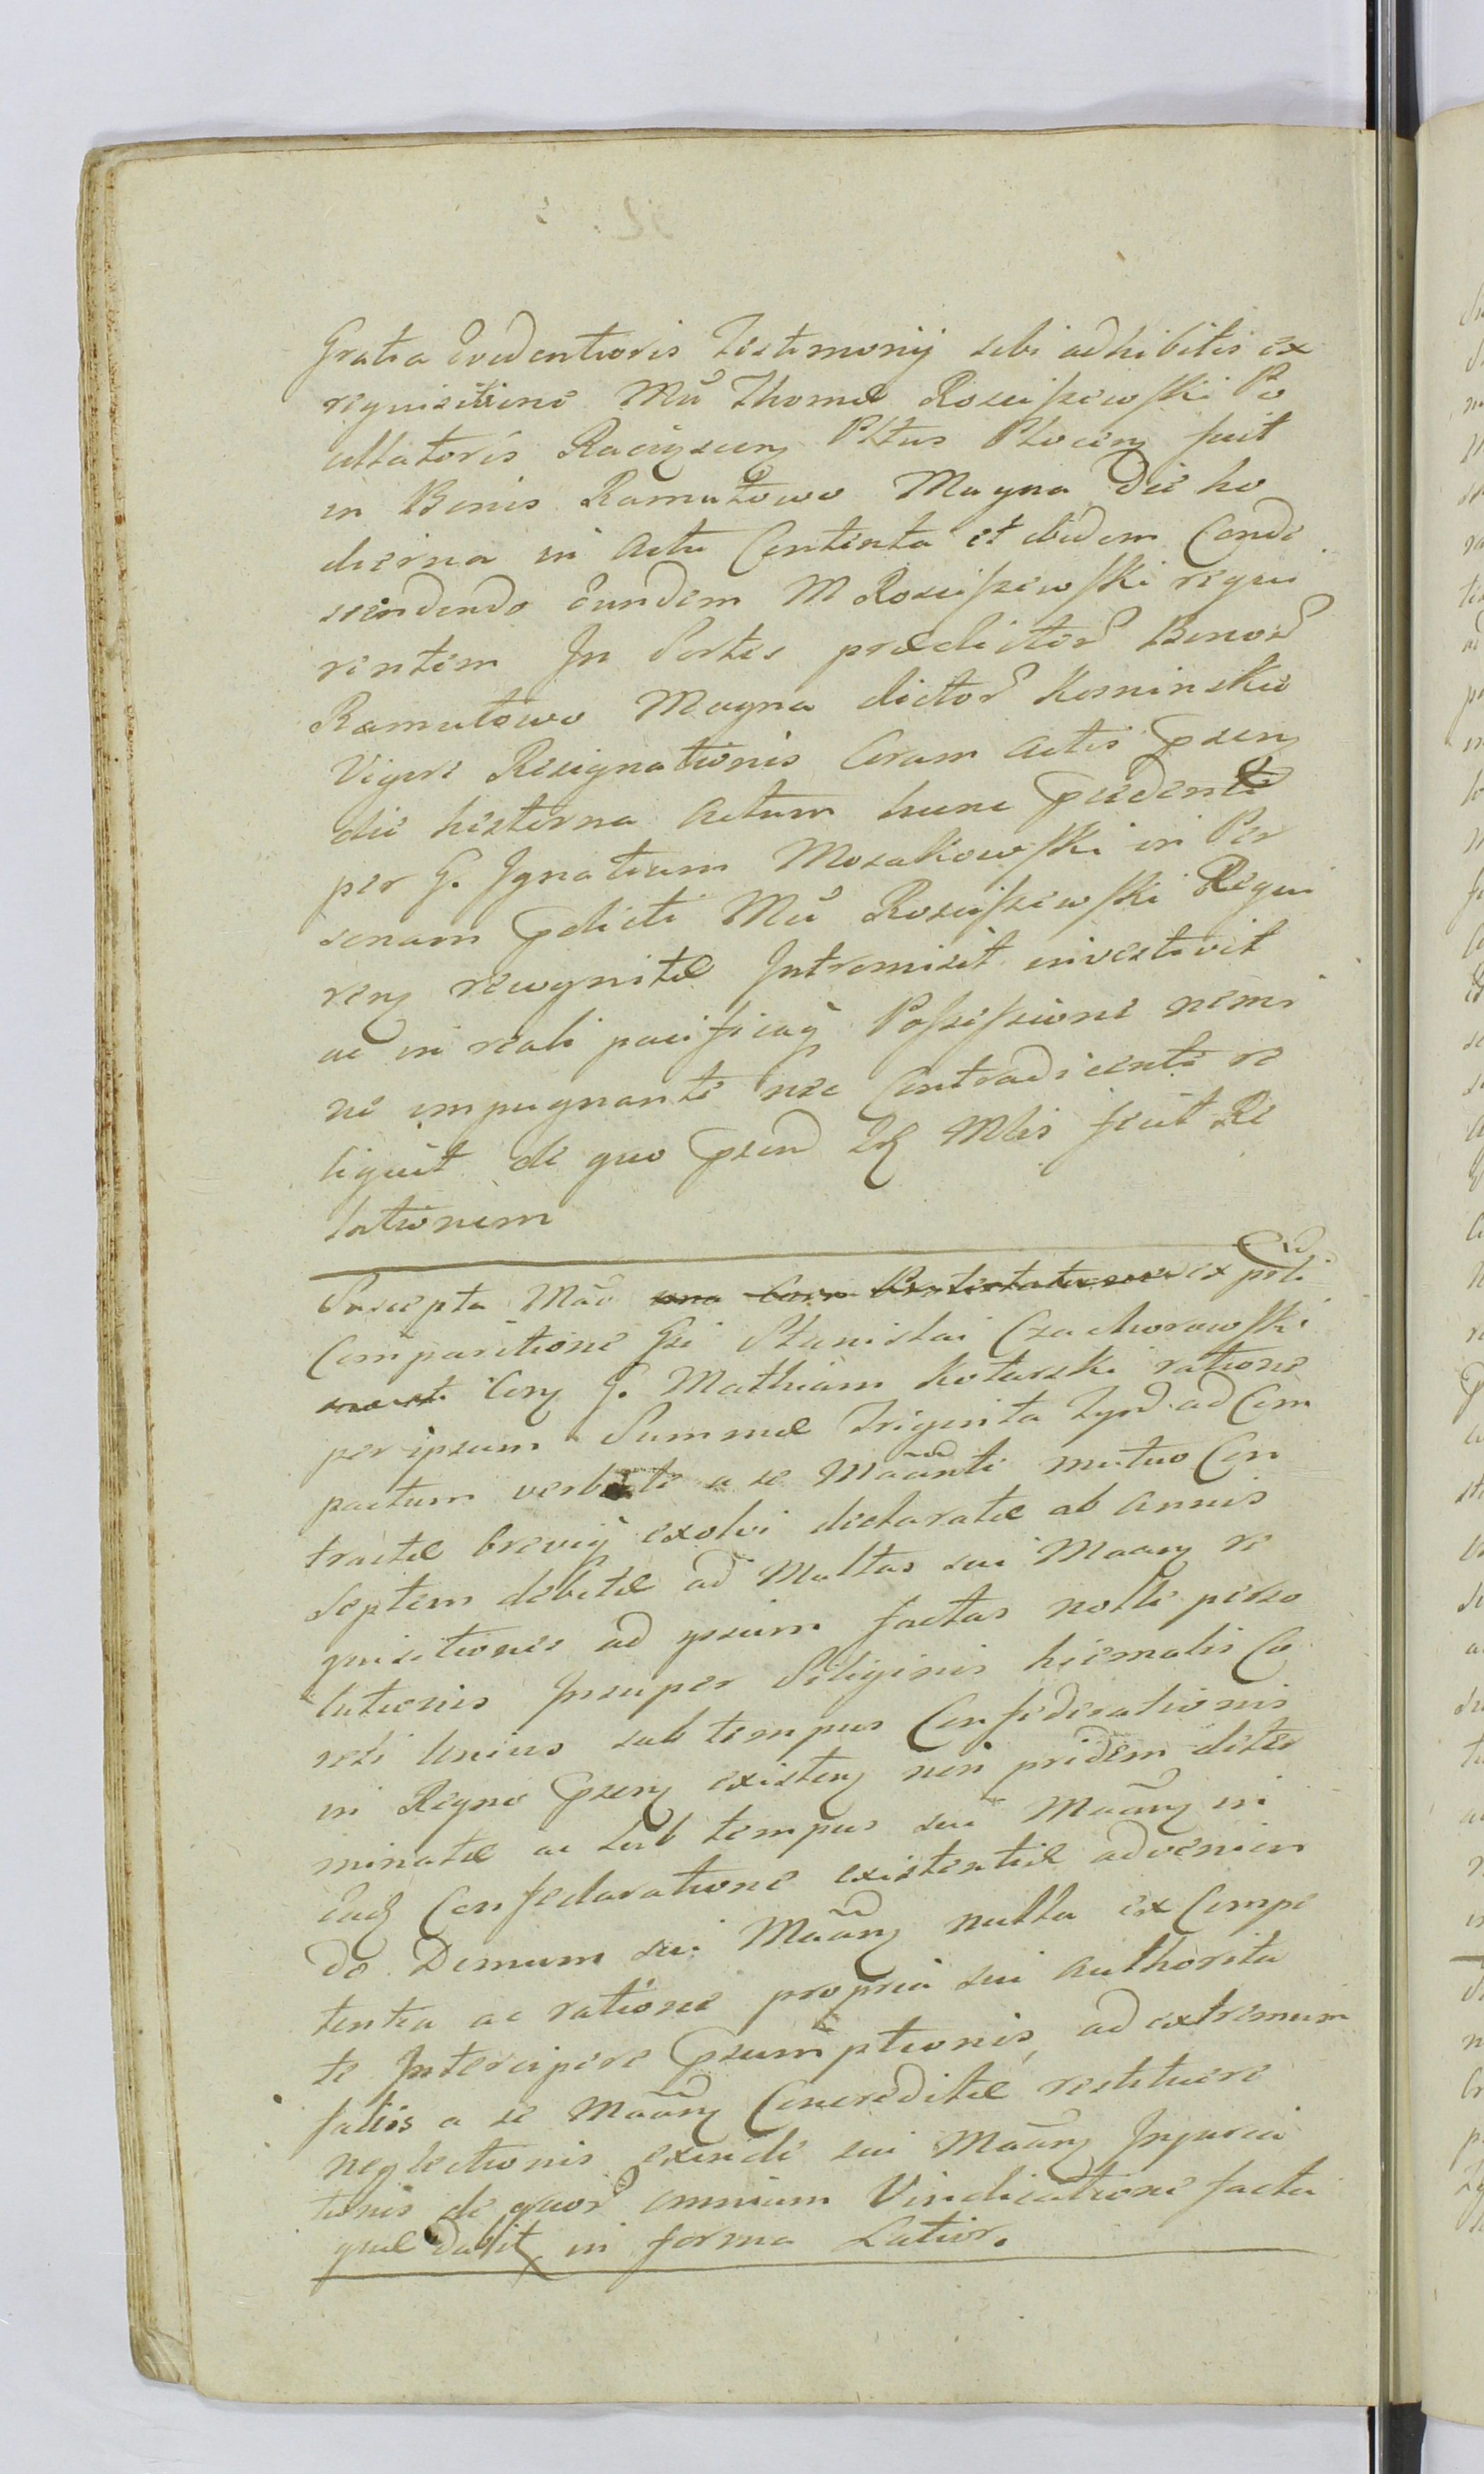 Gratia Evedentioris Testimonij sibi adhibitis ex
requisitione Mci Thomæ Rosciszewski Po
cillatoris Raciązseng Pttus Plocen fuit
in Bonis Ramutowo Magna die ho
dierna in actu Contenta et ibidem Conde
scendendo Eundem M Rosciszewski requi
rentem In Sortes prædictor Bonor
Ramutowo Magna dictor Kosminskie
Vigore Resignationis Coram actis psen
die hesterna actum hunc pcedente
per G. Ignatium Mosakowski in Per
sonam pdicti Mci Rosciszewski Requi
ren recognitæ Intromisit investivit
ac in reali pacificaq Possessione nemi
ne impugnante nec Contradicente re
liquit de quo psend Mlis fecit Re
lationem
Suscepta Maō una Cum Protestatione ex psli
Comparitione Gsi Stanislai Czachorowski
Con G. Mathiam Kotarski ratione
per ipsum Summæ Triginta Tynf ad Com
pactum verbale a se Maānti mutuo Con
tractæ breviq exolvi declaratæ ab annis
Septem debitæ ad Multas sui Maan re
quisitiones ad ipsum factas nolle perso
lutionis Insuper Siliginis hiemalis Co
reti Unius sub tempus Confederationis
in Regno psen existen non pridem deter
minatæ ac sub tempus sui Maān in
Eadq Confedaratione existentiæ advenien
do Domum sui Maān nulla ex Compe
tentia ac ratione propria sui authorita
te Intercipere psumptionis, ad extremum
falcis a se Maān Concreditæ restituere
neglectionis exinde sui Maān Injuria
tionis de quor omnium Vindicatione facta
quæ dasit in forma Latior.